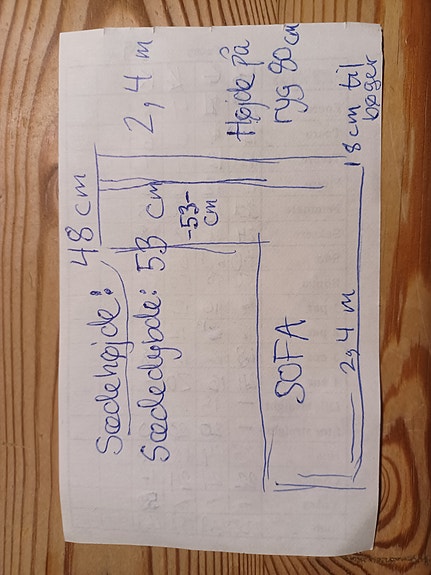 Sædehøjde: 48 cm
Sædedybde: 53 cm
2,4 m
-53-
cm
Højde på
ryg 80 cm
SOFA
2,4 m
18 cm til
bøger